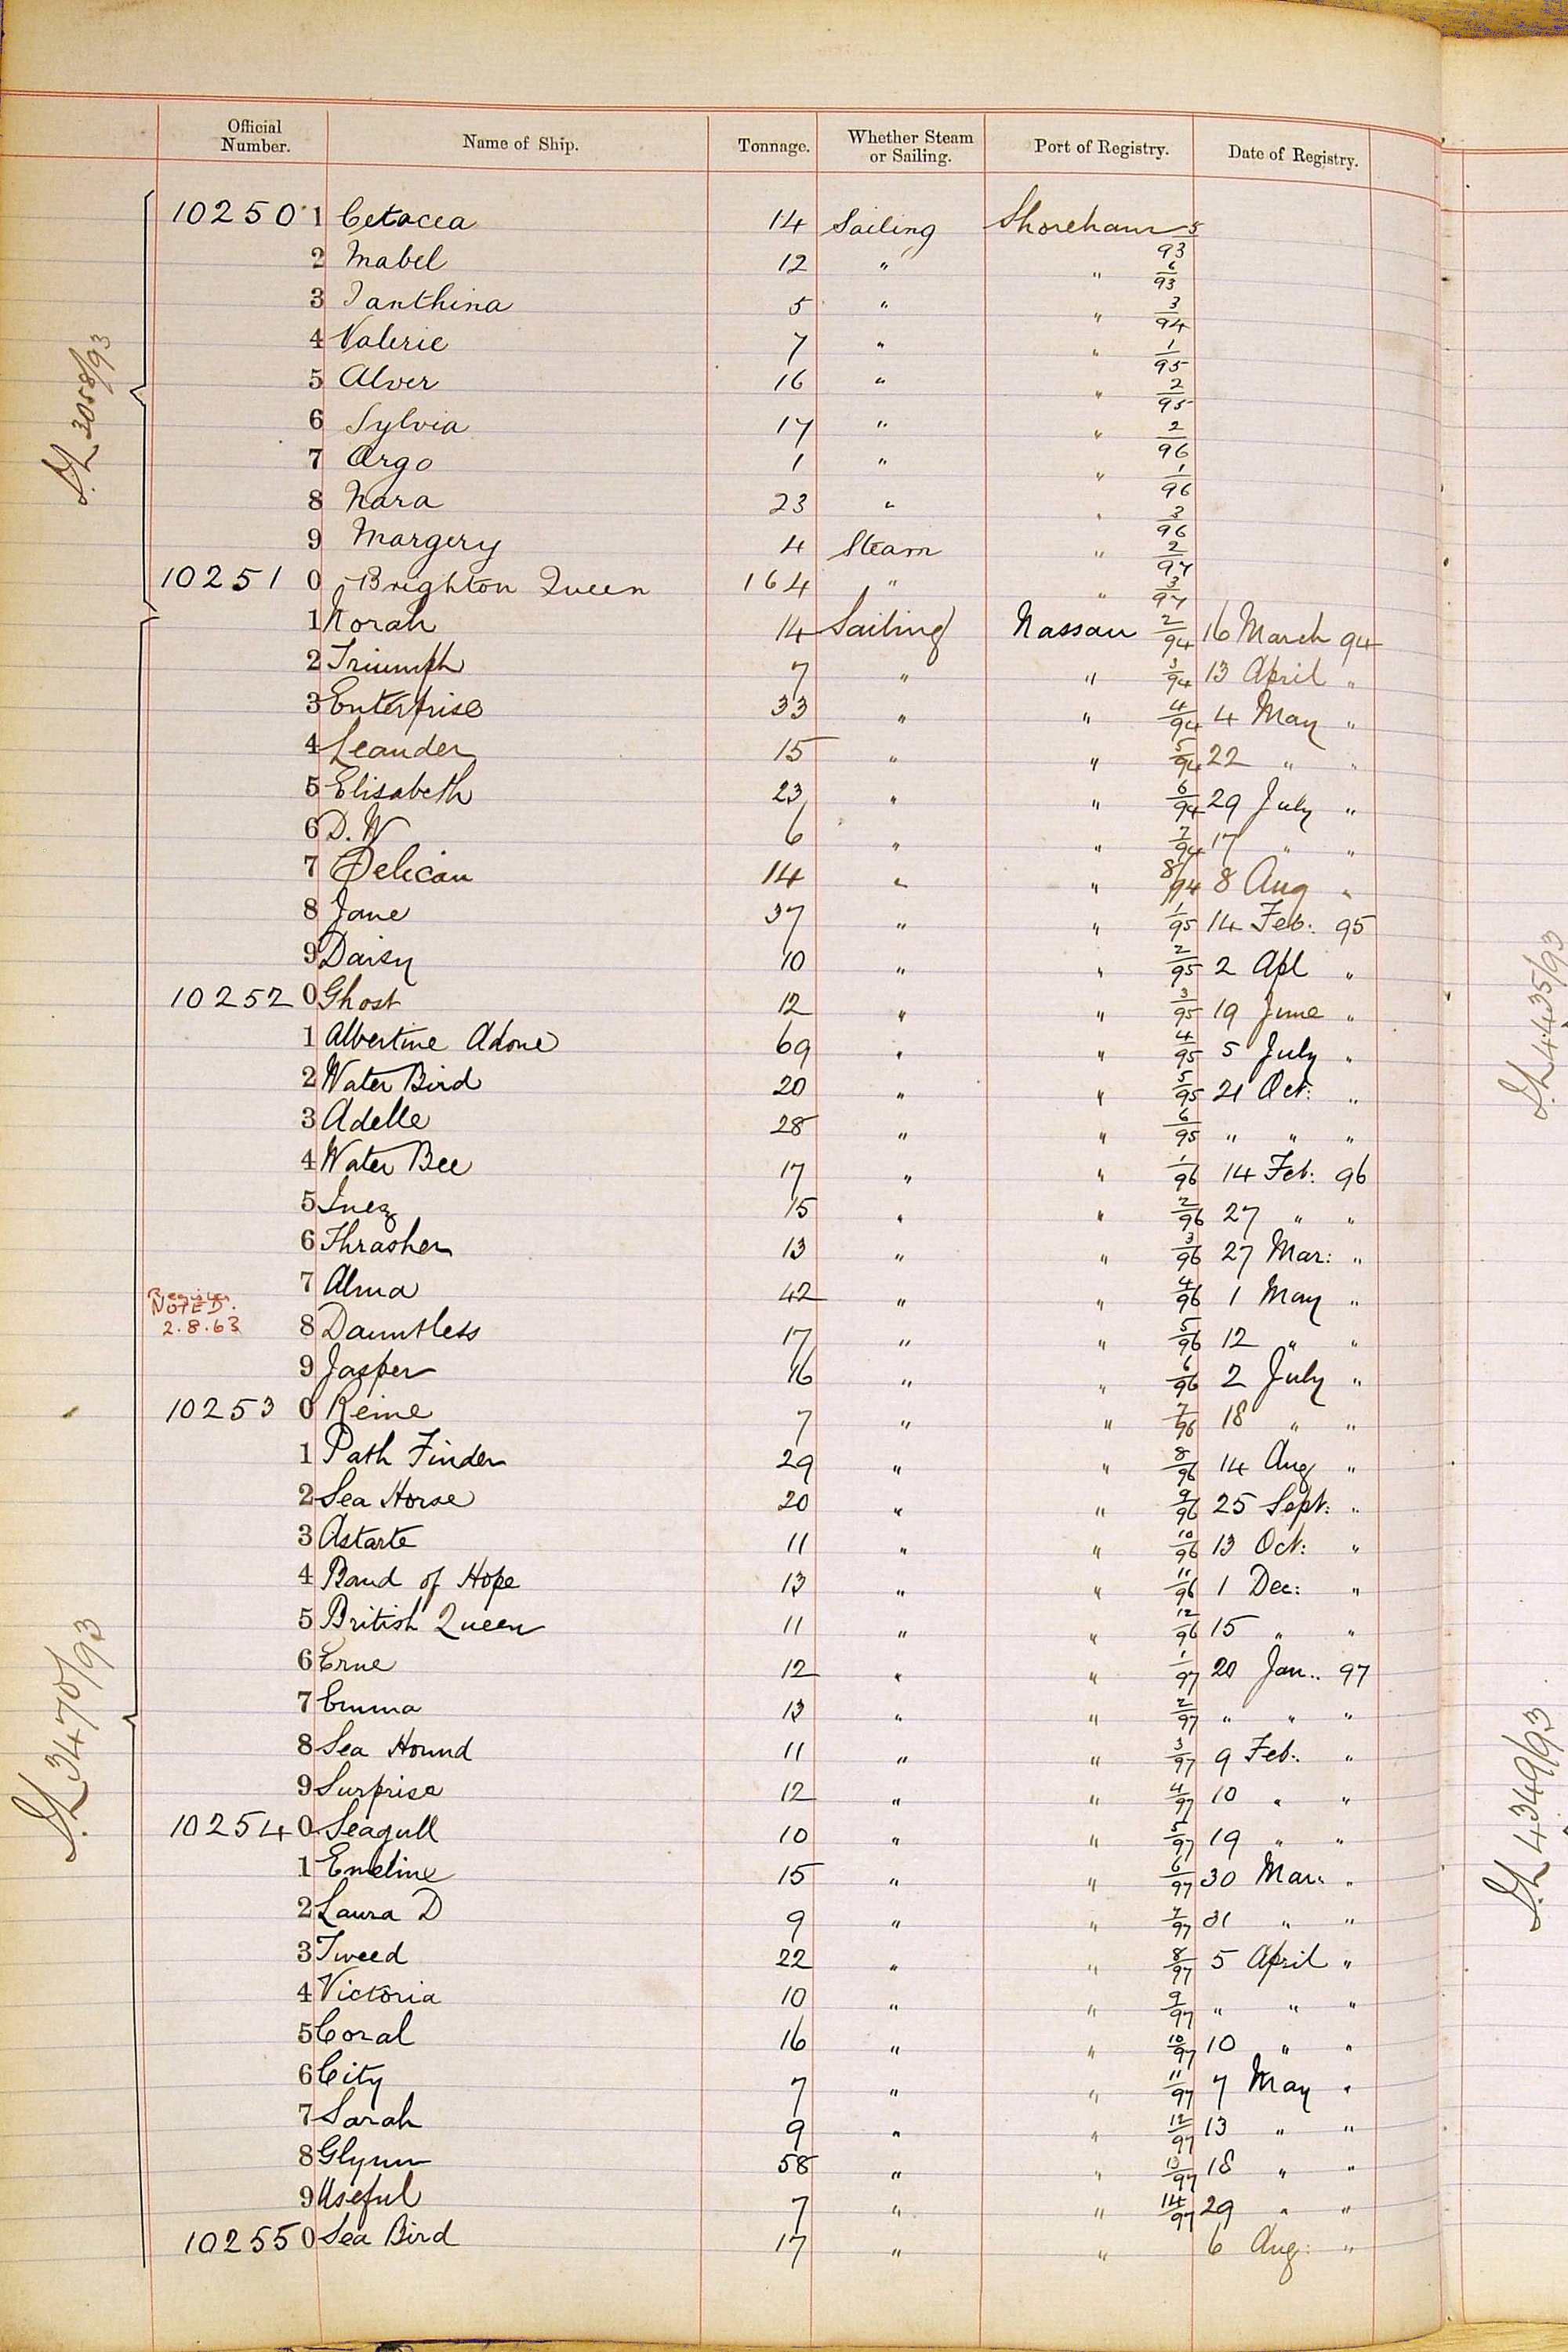 Official Number. Name of Ship. Tonnage. Whether Steam or Sailing. Port of Registry. Date of Registry.
10250 1 Cetacea 14 Sailing Shoreham 5/93
2 Mabel 12 " " 6/93
3 Ianthina 5 " " 3/94
4 Valerie 7 " " 1/95
5 Alver 16 " " 2/95
6 Sylvia 17 " " 2/96
7 Argo 1 " " 1/96
8 Nara 23 " " 3/96
9 Margery 4 Steam " 2/97
10251 0 Brighton Queen 164 " " 3/97
1 Norah 14 Sailing Nassau 2/94 16 March 94
2 Triumph 7 " " 3/94 13 April "
3 Enterprise 33 " " 4/94 4 May "
4 Leander 15 " " 5/94 22 " "
5 Elisabeth 23 " " 6/94 29 July "
6 D. W 6 " " 7/94 17 " "
7 Pelican 14 " " 8/94 8 Aug "
8 Jane 37 " " 1/95 14 Feb: 95
9 Daisy 10 " " 2/95 2 Apl "
10252 0 Ghost 12 " " 3/95 19 June "
1 Albertine Adone 69 " " 4/95 5 July "
2 Water Bird 20 " " 5/95 21 Oct: "
3 Adelle 28 " " 6/95 " " "
4 Water Bee 17 " " 1/96 14 Feb: 96
5 Inez 15 " " 2/96 27 " "
6 Thrasher 13 " " 3/96 27 Mar: "
7 Alma 42 " " 4/96 1 May "
Register NOTED. 2.8.63
8 Dauntless 17 " " 5/96 12 " "
9 Jasper 16 " " 6/96 2 July "
10253 0 Reine 7 " " 7/96 18 " "
1 Path Finder 29 " " 8/96 14 Aug "
2 Sea Horse 20 " " 9/96 25 Sept: "
3 Astarte 11 " " 10/96 13 Oct: "
4 Band of Hope 13 " " 11/96 1 Dec: "
5 British Queen 11 " " 12/96 15 " "
6 Erne 12 " " 1/97 20 Jan.. 97
7 Emma 13 " " 2/97 " " "
8 Sea Hound 11 " " 3/97 9 Feb: "
9 Surprise 12 " " 4/97 10 " "
10254 0 Seagull 10 " " 5/97 19 " "
1 Emeline 15 " " 6/97 30 Mar: "
2 Laura D 9 " " 7/97 31 " "
3 Tweed 22 " " 8/97 5 April "
4 Victoria 10 " " 9/97 " " "
5 Coral 16 " " 10/97 10 " "
6 City 7 " " 11/97 7 May "
7 Sarah 9 " " 12/97 13 " "
8 Glynn 58 " " 13/97 18 " "
9 Useful 7 " " 14/97 29 " "
10255 0 Sea Bird 17 " " 6 Aug: "
3058/93
3470/93
4435/93
4349/93